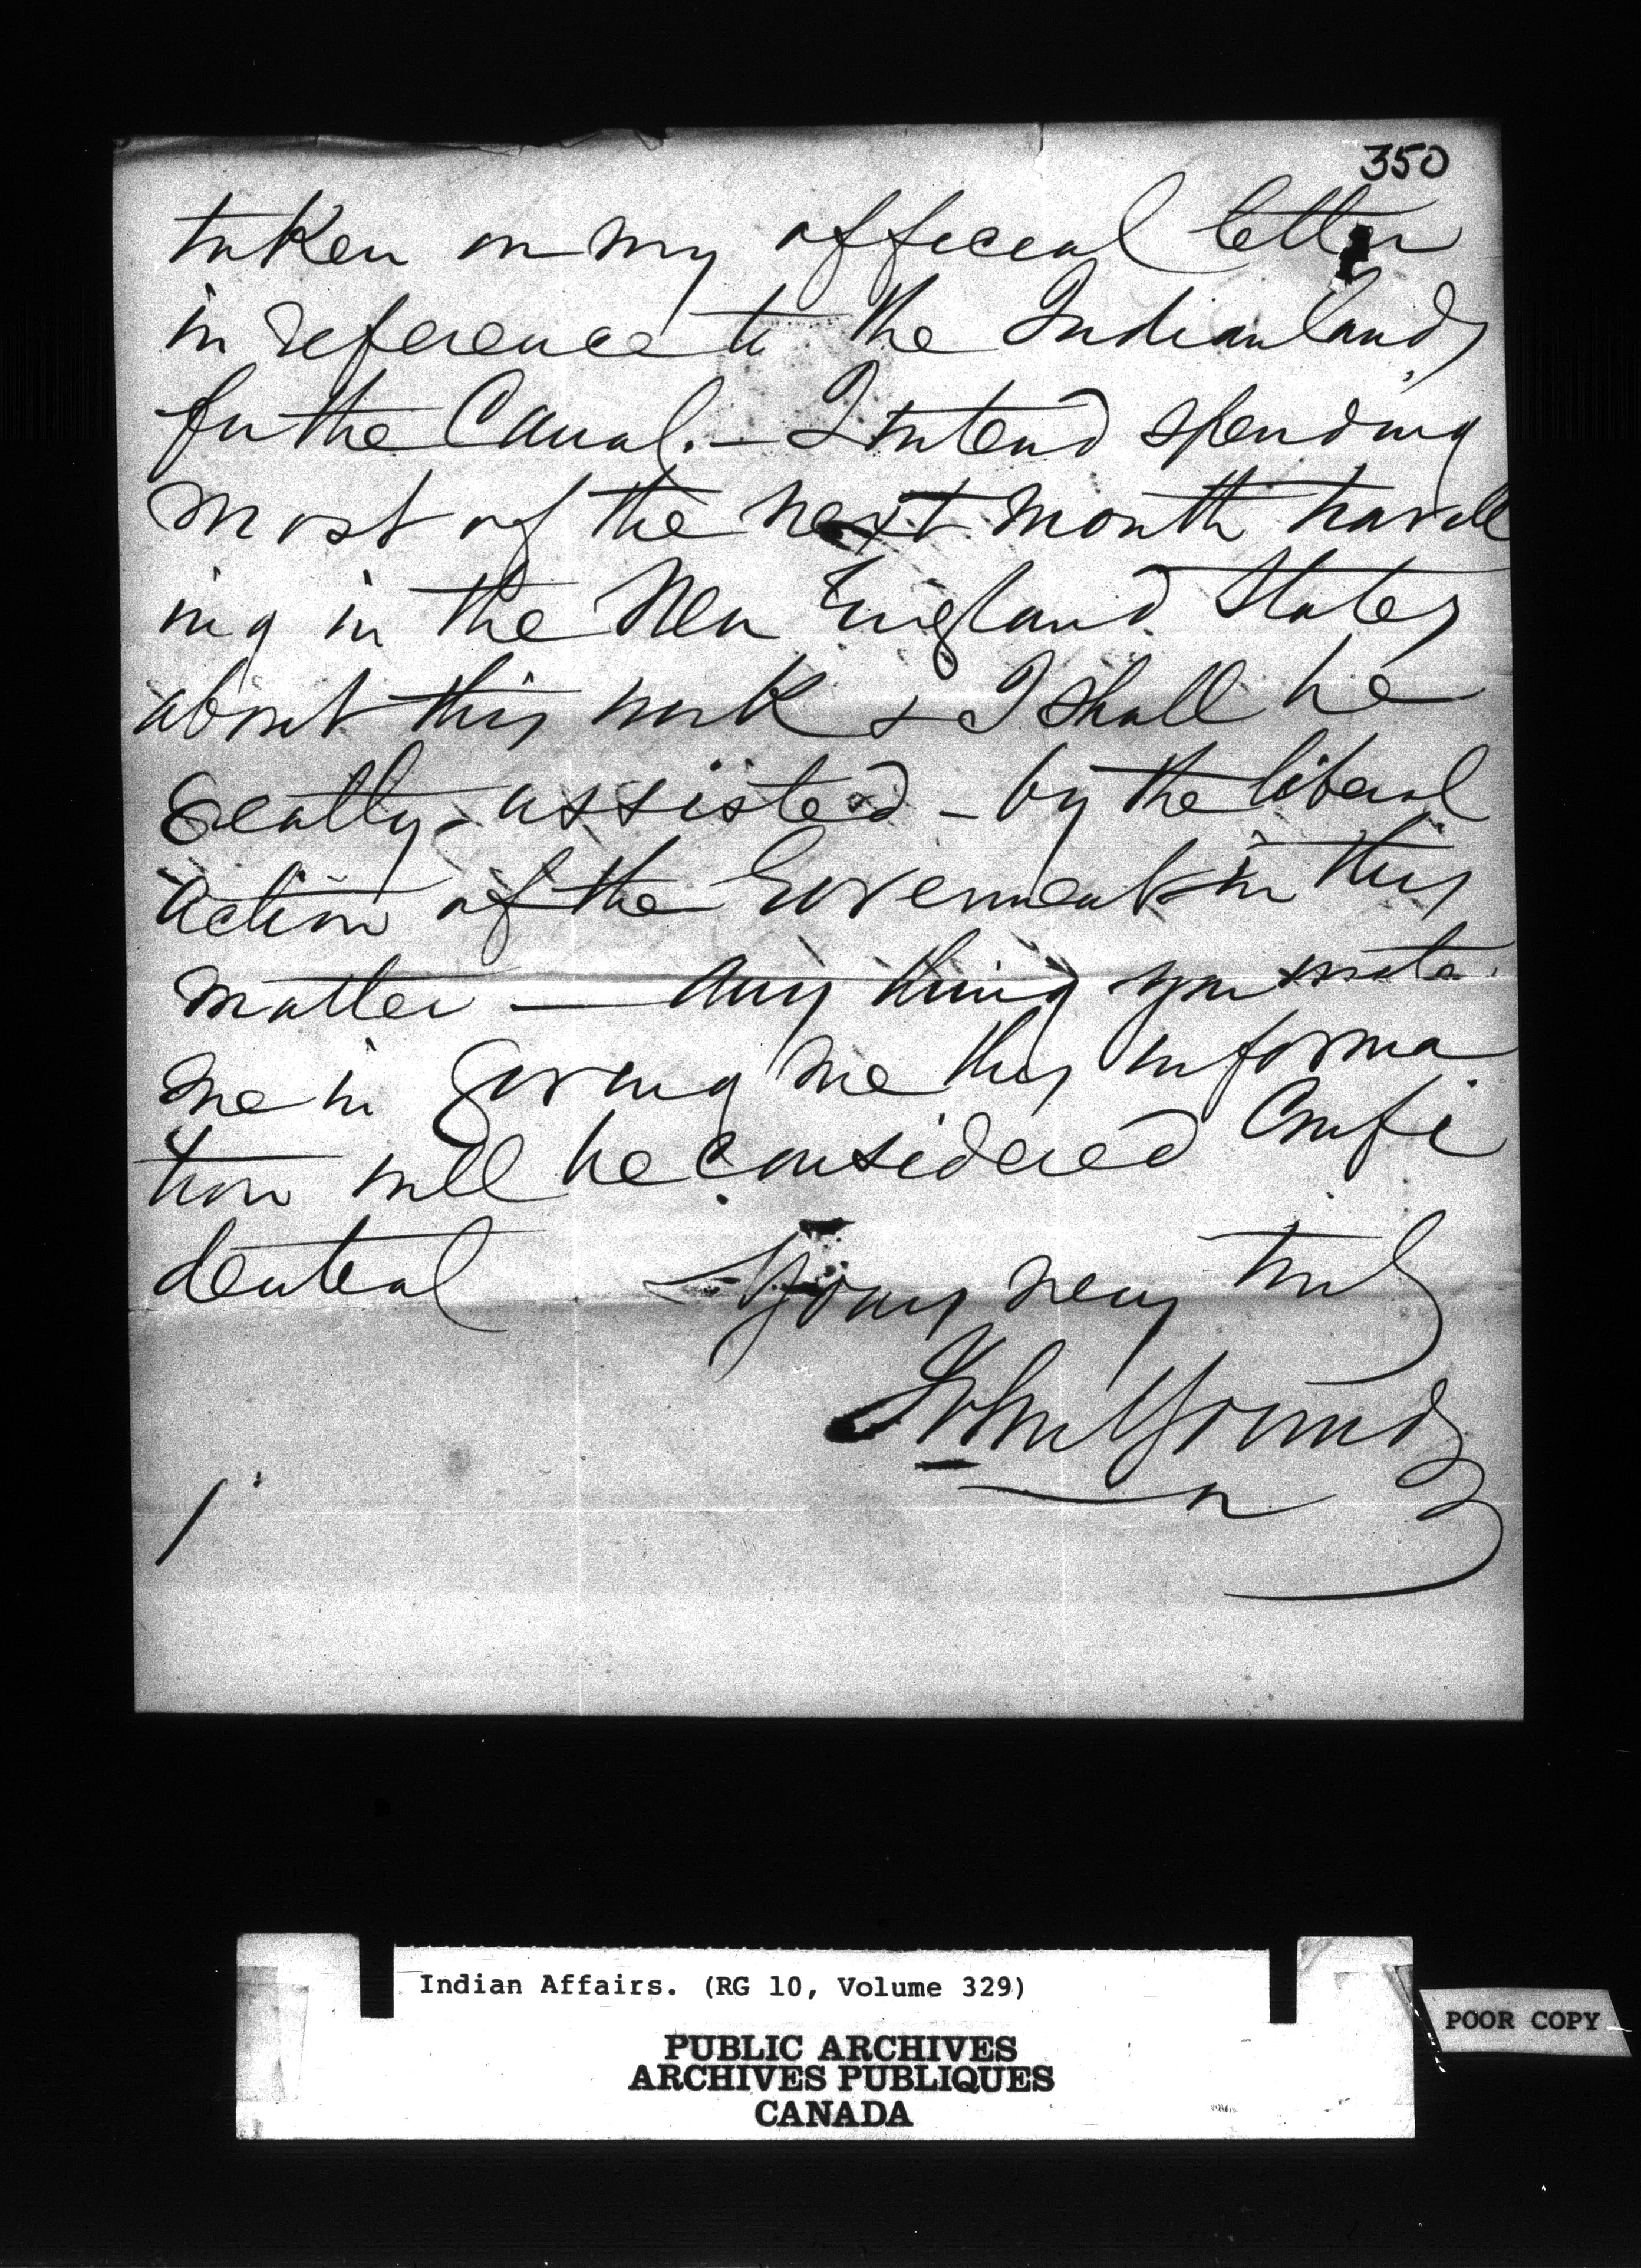 350
taken on my official letter
in reference to the Indian lands
for the Canal. — I intend spending
most of the next month travell
ing in the New England States
about this work & I shall be
greatly assisted — by the liberal
action of the Goverment in this
matter — Any thing you
me in me this informa
tion will be considered Confi
dential Yours very truly
John Young
Indian Affairs. (RG 10, Volume 329)
PUBLIC ARCHIVES
ARCHIVES PUBLIQUES
CANADA
POOR COPY